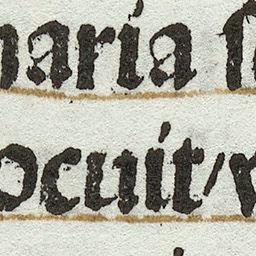 maria
ocuit/